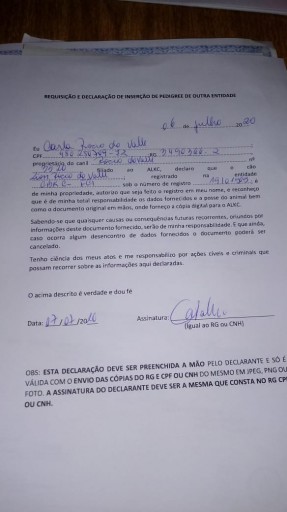 REQUISIÇÃO E DECLARAÇÃO DE INSERÇÃO DE PEDIGREE DE OUTRA ENTIDADE
06 de julho 20 20
Eu Carla
CPF
proprietário do canil do Valle nº
filiado ao ALKC, declaro que o cão
registrado na entidade
sob o número de registro , é
de minha propriedade, autorizo que seja feito o registro em meu nome, e reconheço
que é de minha total responsabilidade os dados fornecidos e a posse do animal bem
como o documento original em mãos, onde forneço a cópia digital para o ALKC.
Sabendo-se que quaisquer causas ou consequências futuras recorrentes, oriundos por
informações deste documento fornecido, serão de minha responsabilidade. E que ainda,
caso ocorra algum desencontro de dados fornecidos o documento poderá ser
cancelado.
Tenho ciência dos meus atos e me responsabilizo por ações cíveis e criminais que
possam recorrer sobre as informações aqui declaradas.
O acima descrito é verdade e dou fé
Data: Assinatura:
(Igual ao RG ou CNH)
OBS: ESTA DECLARAÇÃO DEVE SER PREENCHIDA A MÃO PELO DECLARANTE E SÓ É
VÁLIDA COM O ENVIO DAS CÓPIAS DO RG E CPF OU CNH DO MESMO EM JPEG, PNG OU
FOTO. A ASSINATURA DO DECLARANTE DEVE SER A MESMA QUE CONSTA NO RG CPF
OU CNH.